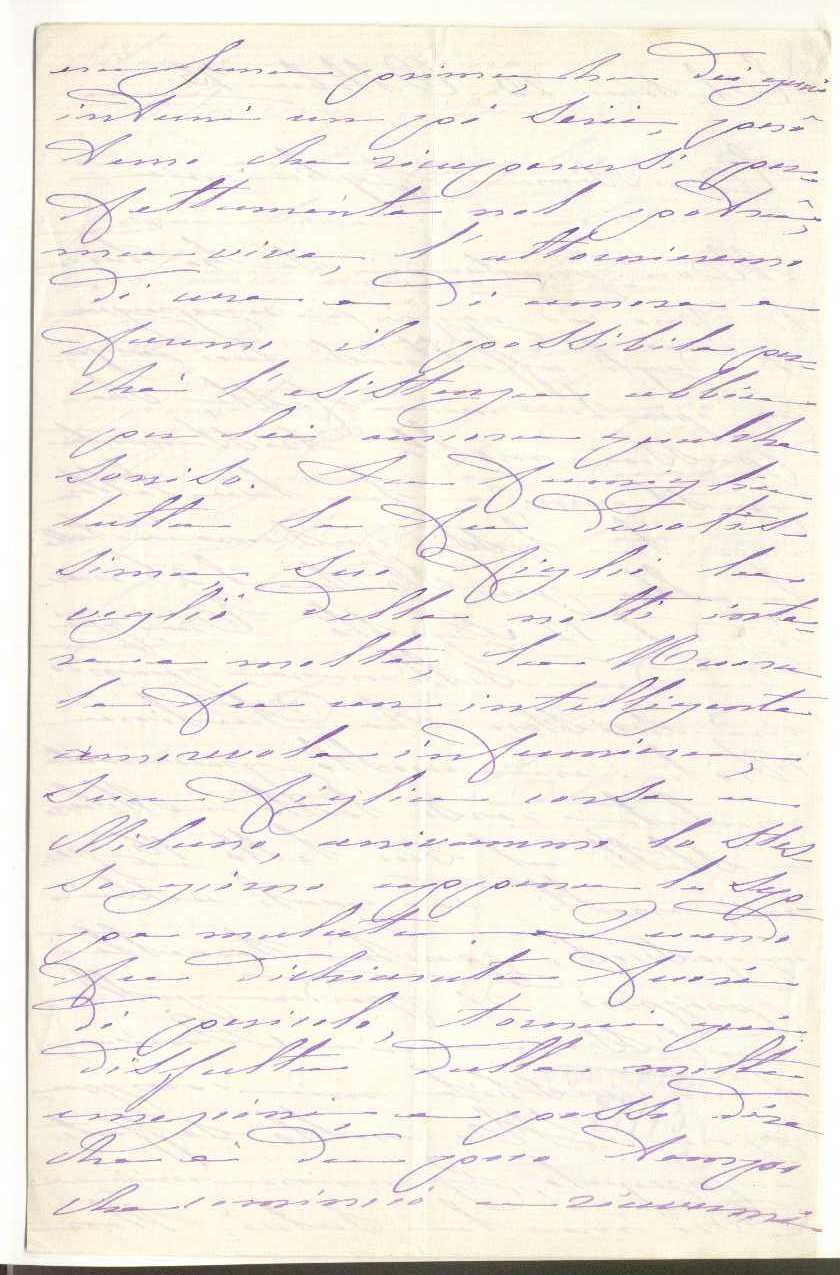 era sana prima, ha dei giorni
interi un pò serii, però
temo che ricuperarsi per-
fettamente nol potrà,
ma viva, l'attornieremo
di cure e di amore e
faremo il possibile per-
chè l'esistenza abbia
per lei ancora qualche
sorriso. La famiglia
tutta le fu devotis-
sima, suo figlio la
vegliò delle notti inte-
re e molte, la Nuora
le fu un intelligente
amorevole infermiera,
sua figlia corse a
Milano, arrivammo lo stes-
so giorno appena la sep-
pe malata. Quando
fu dichiarata fuori
di pericolo, tornai qui
disfatta dalle molte
emozioni, e posso dire
che è da poco tempo
che comincio a riavermi